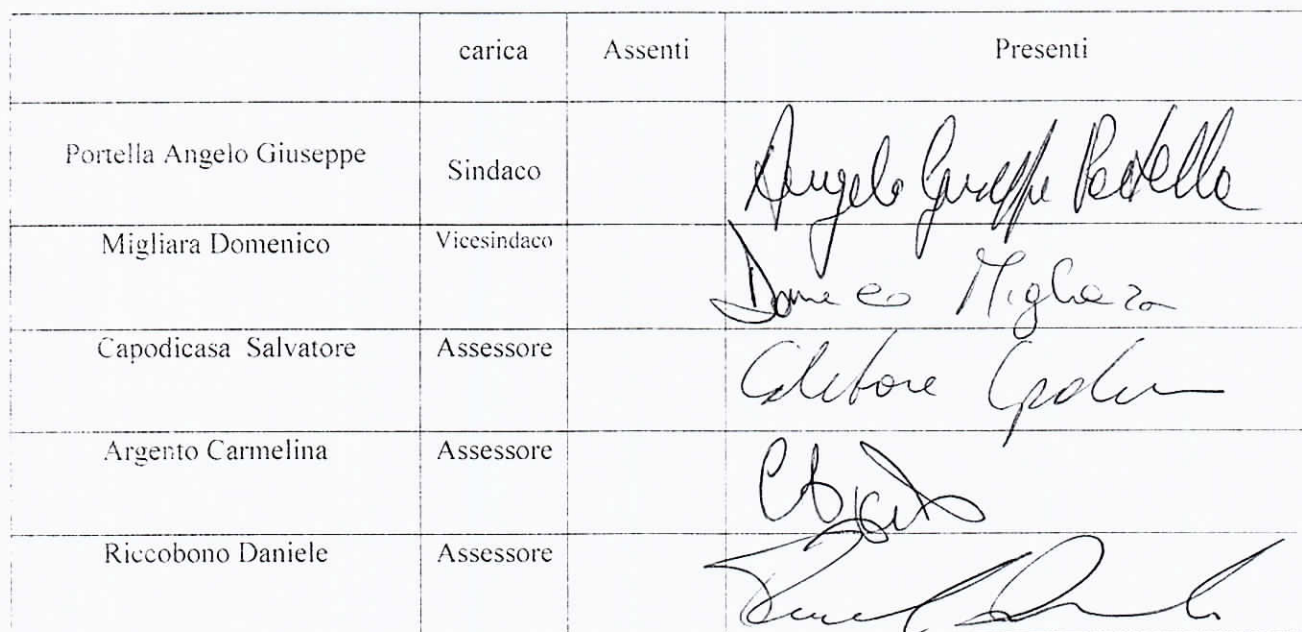 carica Assenti Presenti
Portella Angelo Giuseppe Sindaco Angelo Giuseppe Portella
Migliara Domenico Vicesindaco Domenico Migliara
Capodicasa Salvatore Assessore
Argento Carmelina Assessore
Riccobono Daniele Assessore